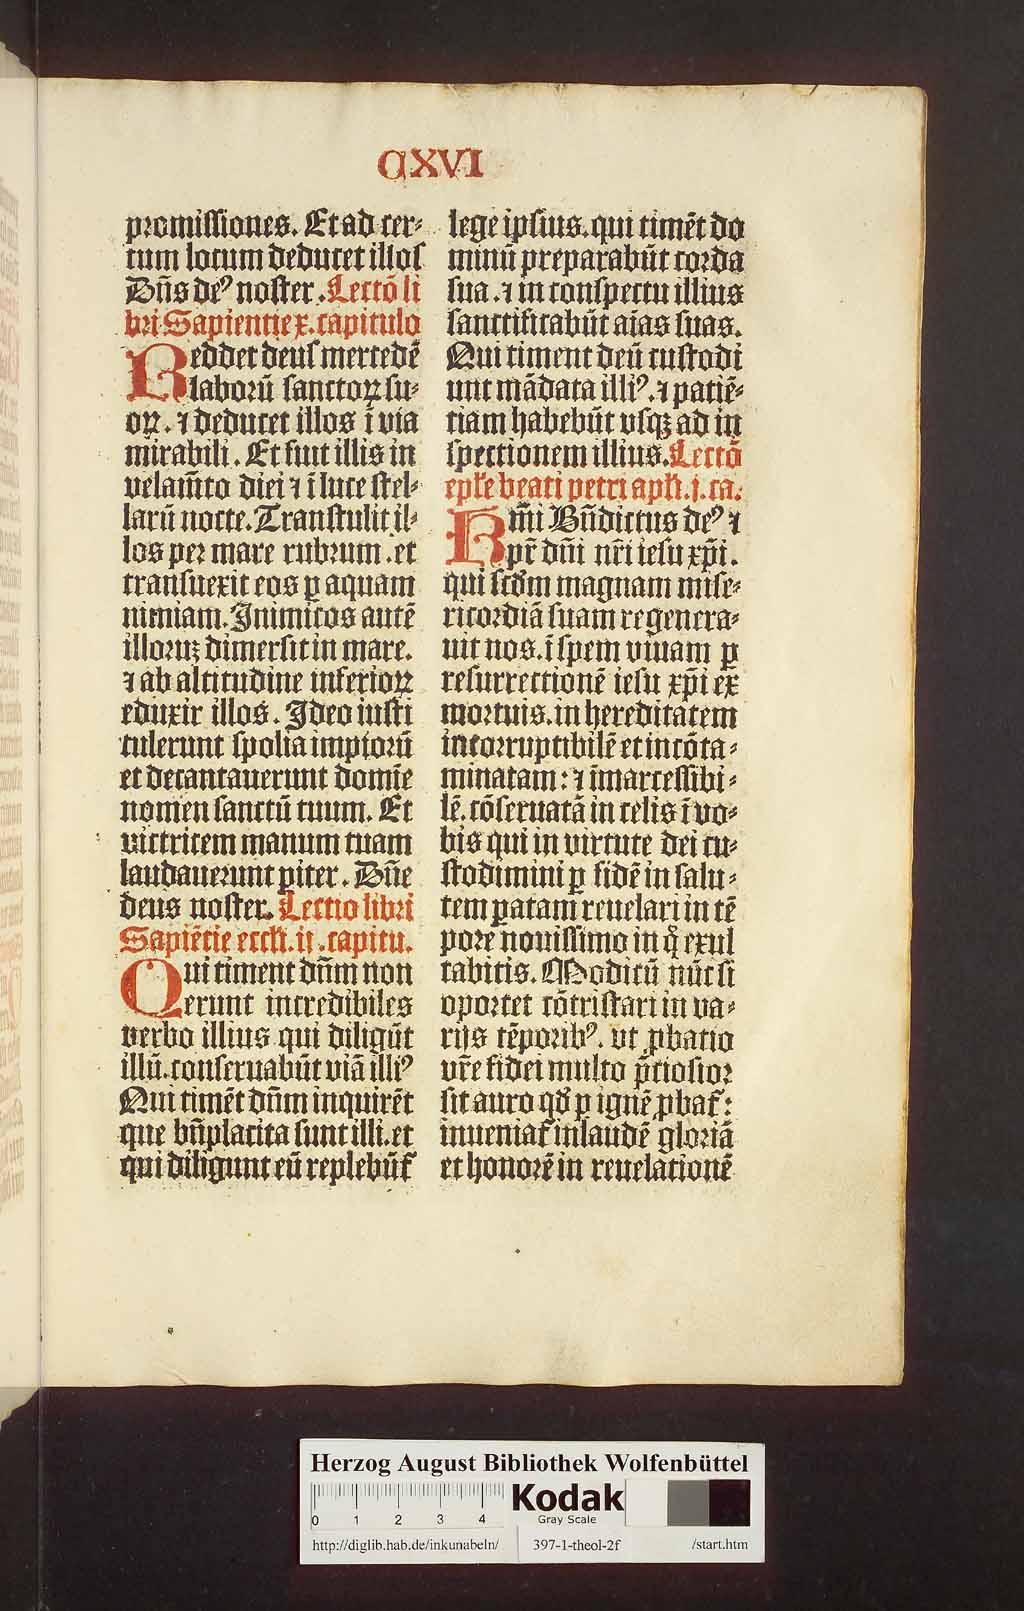 CXVI
promissiones. Et ad cer⸗
tum locum deducet illos
Dn̄s deꝰ noster. Lectō li
bri Sapientie x. capitulo
Reddet deus mercedē
laborū sanctoꝝ su⸗
oꝝ. ⁊ deducet illos ī via
mirabili. Et fuit illis in
velam̄to diei ⁊ ī luce stel⸗
larū nocte. Transtulit il⸗
los per mare rubrum. et
transuexit eos ꝑ aquam
nimiam. Inimicos autē
illoruꝫ dimersit in mare.
⁊ ab altitudine inferioꝝ
eduxit illos. Ideo iusti
tulerunt spolia impiorū
et decantauerunt domīe
nomen sanctū tuum. Et
victricem manum tuam
laudauerunt ꝑiter. Dn̄e
deus noster. Lectio libri
Sapiētie eccłi. ij. capitu.
Qui timent dn̄m non
erunt incredibiles
verbo illius qui diligūt
illū. conseruabūt viā illiꝰ
Qui timēt dn̄m inquirēt
que bn̄placita sunt illi. et
qui diligunt eū replebūt᷑
lege ipsius. qui timēt do
minū preparabūt corda
sua. ⁊ in conspectu illius
sanctificabūt aīas suas.
Qui timent deū custodi
unt mādata illiꝰ. ⁊ patiē⸗
tiam habebūt vsqꝫ ad in
spectionem illius. Lectō
epłe beati petri apłi. j. ca.
Bn̄dictus deꝰ ⁊
pr̄ dn̄i nr̄i iesu xp̄i.
qui scd̄m magnam mise⸗
ricordiā suam regenera⸗
uit nos. ī spem viuam ꝑ
resurrectionē iesu xp̄i ex
mortuis. in hereditatem
incorruptibilē et incōta⸗
minatam: ⁊ īmarcessibi⸗
lē. cōseruatā in celis ī vo⸗
bis qui in virtute dei cu⸗
stodimini ꝑ fidē in salu⸗
tem ꝑatam reuelari in tē
pore nouissimo in q̊ exul
tabitis. Modicū nūc si
oportet cōtristari in va⸗
rijs tēporibꝰ. vt ꝓbatio
vr̄e fidei multo p̄ciosior
sit auro qd̄ ꝑ ignē ꝓbat᷑:
inueniat᷑ in laudē gloriā
et honorē in reuelationē
Herzog August Bibliothek Wolfenbüttel
0 1 2 3 4
Kodak
Gray Scale
http://diglib.hab.de/inkunabeln/ 397-1-theol-2f /start.htm